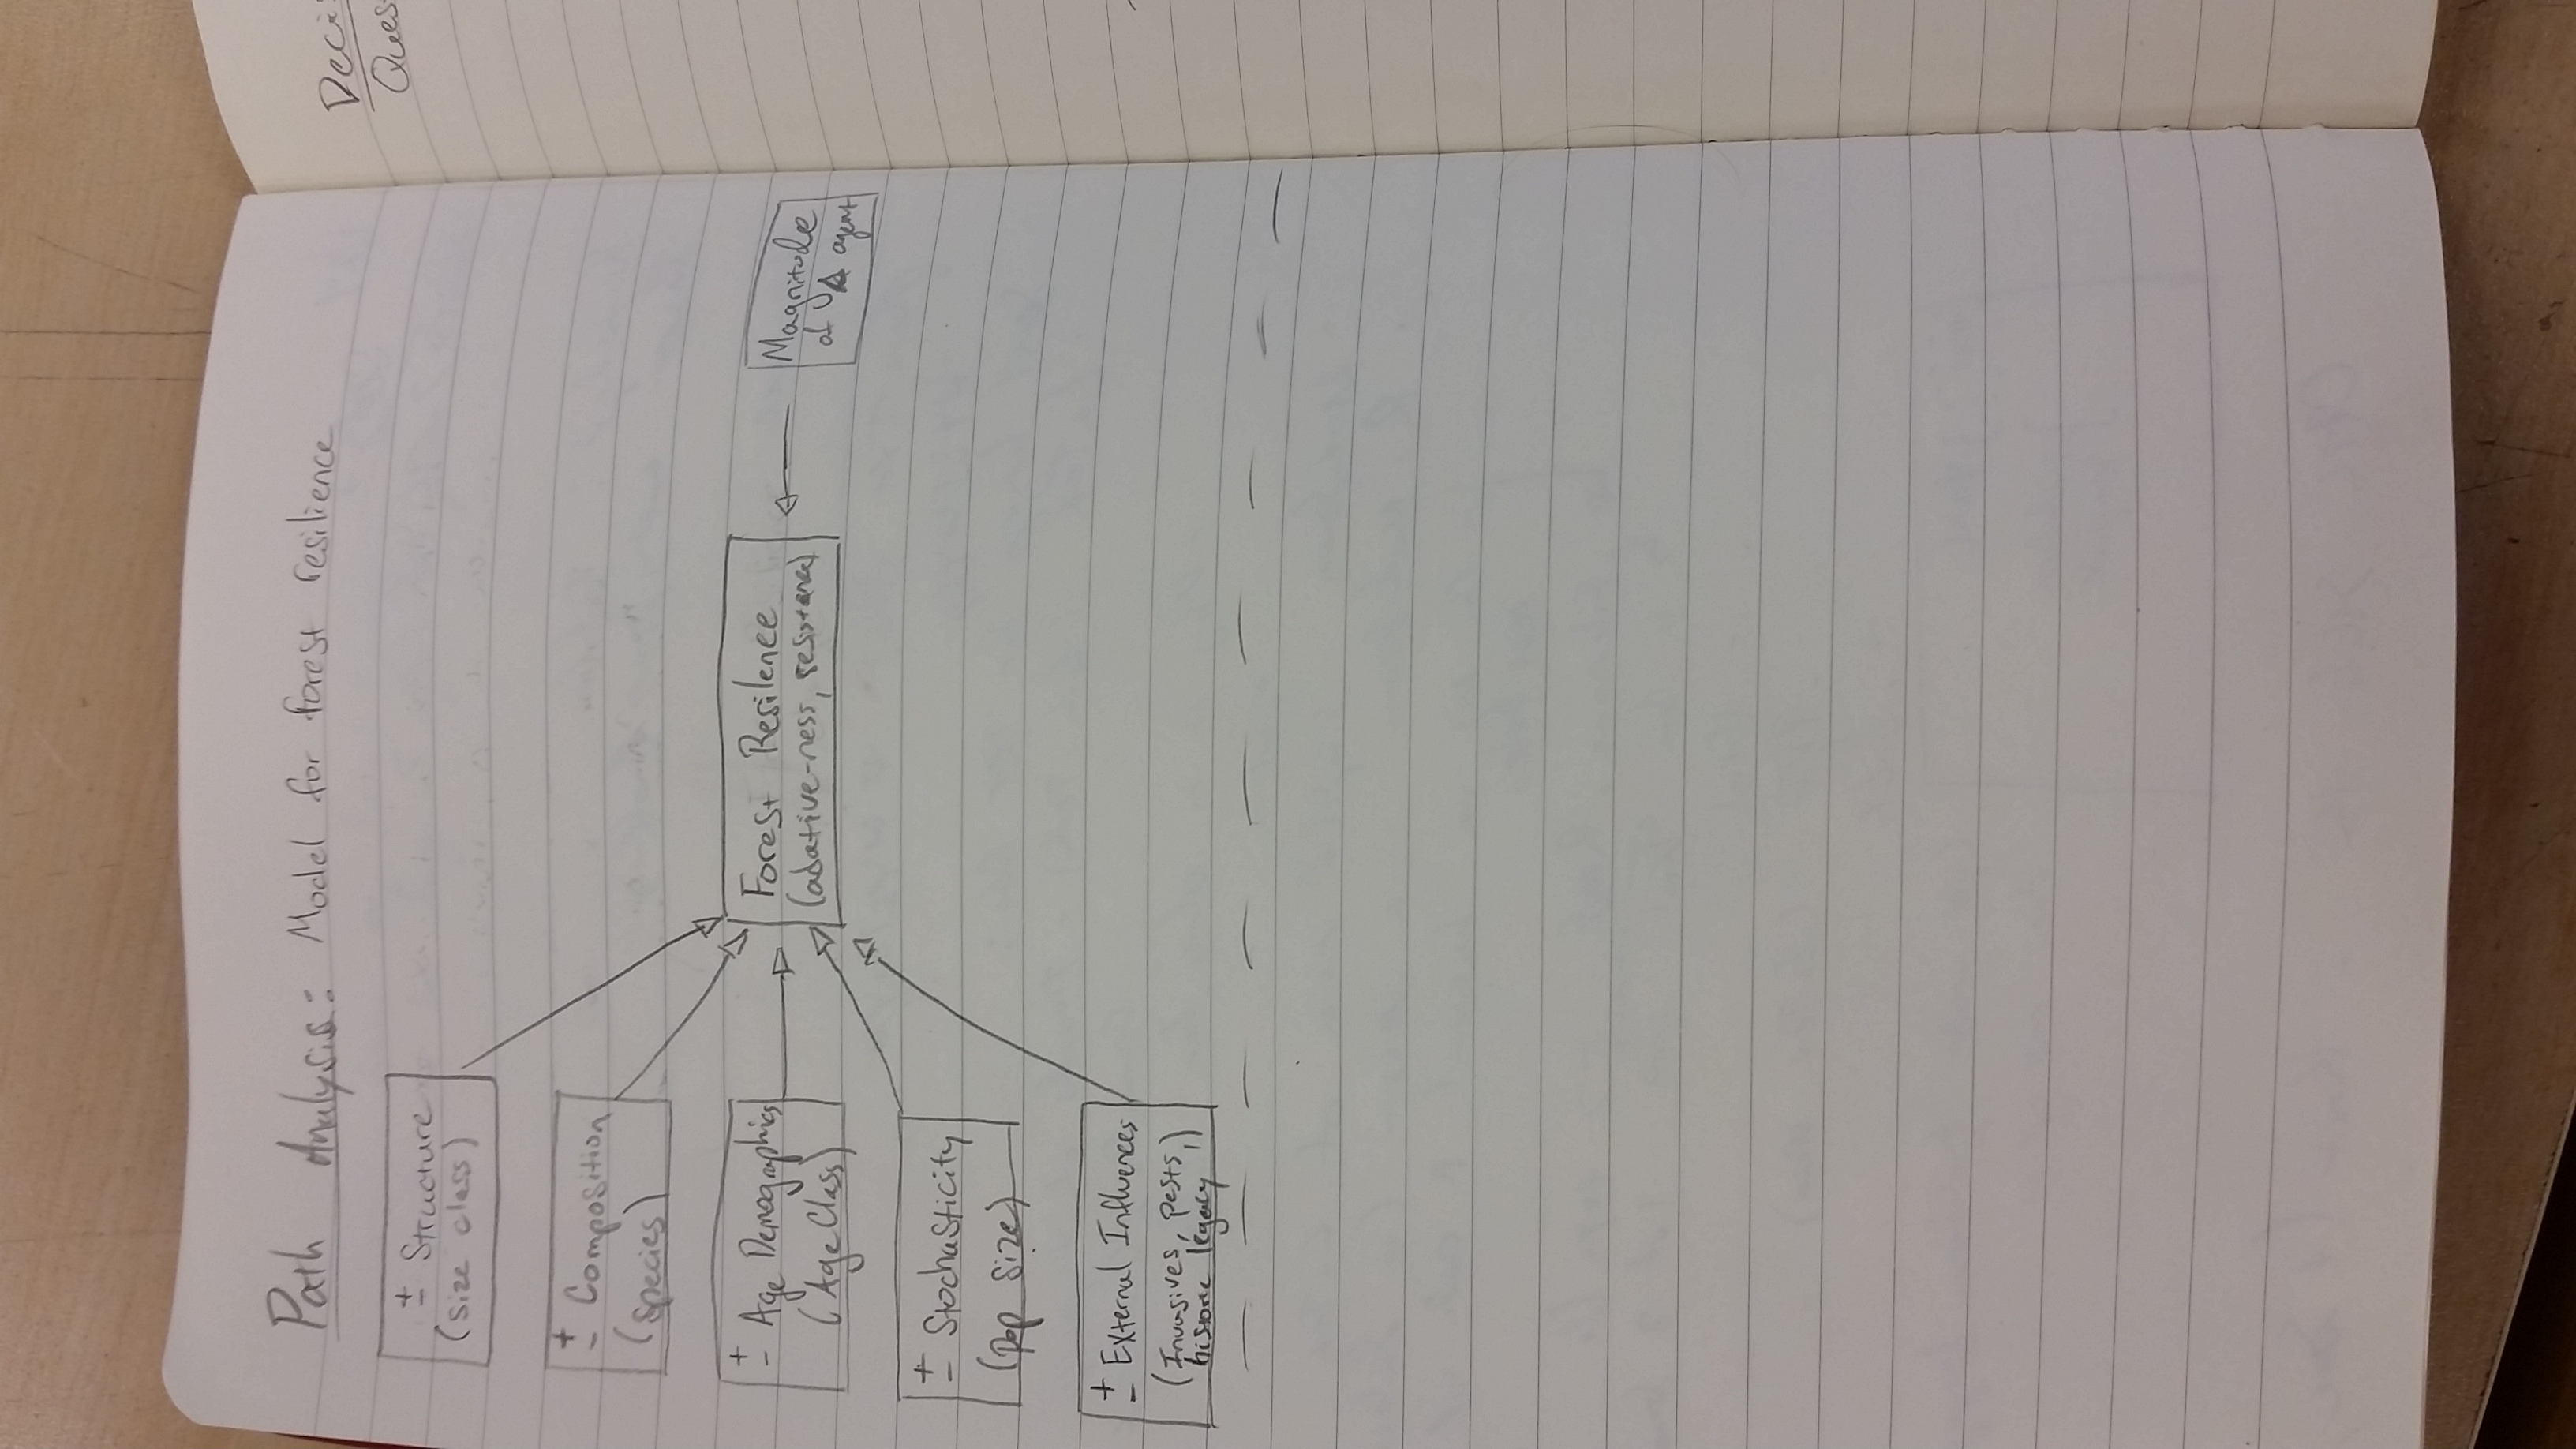 Path Analysis: Model for forest resilience
± Structure
(size class)
± Composition
(species)
± Age Demographics
(Age Class)
± Stochasticity
(pop size)
± External Influences
(Invasives, pests,)
historic legacy
Forest Resilence
(adative-ness, resistance)
Magnitude
of Δ agent
Deci
Ques